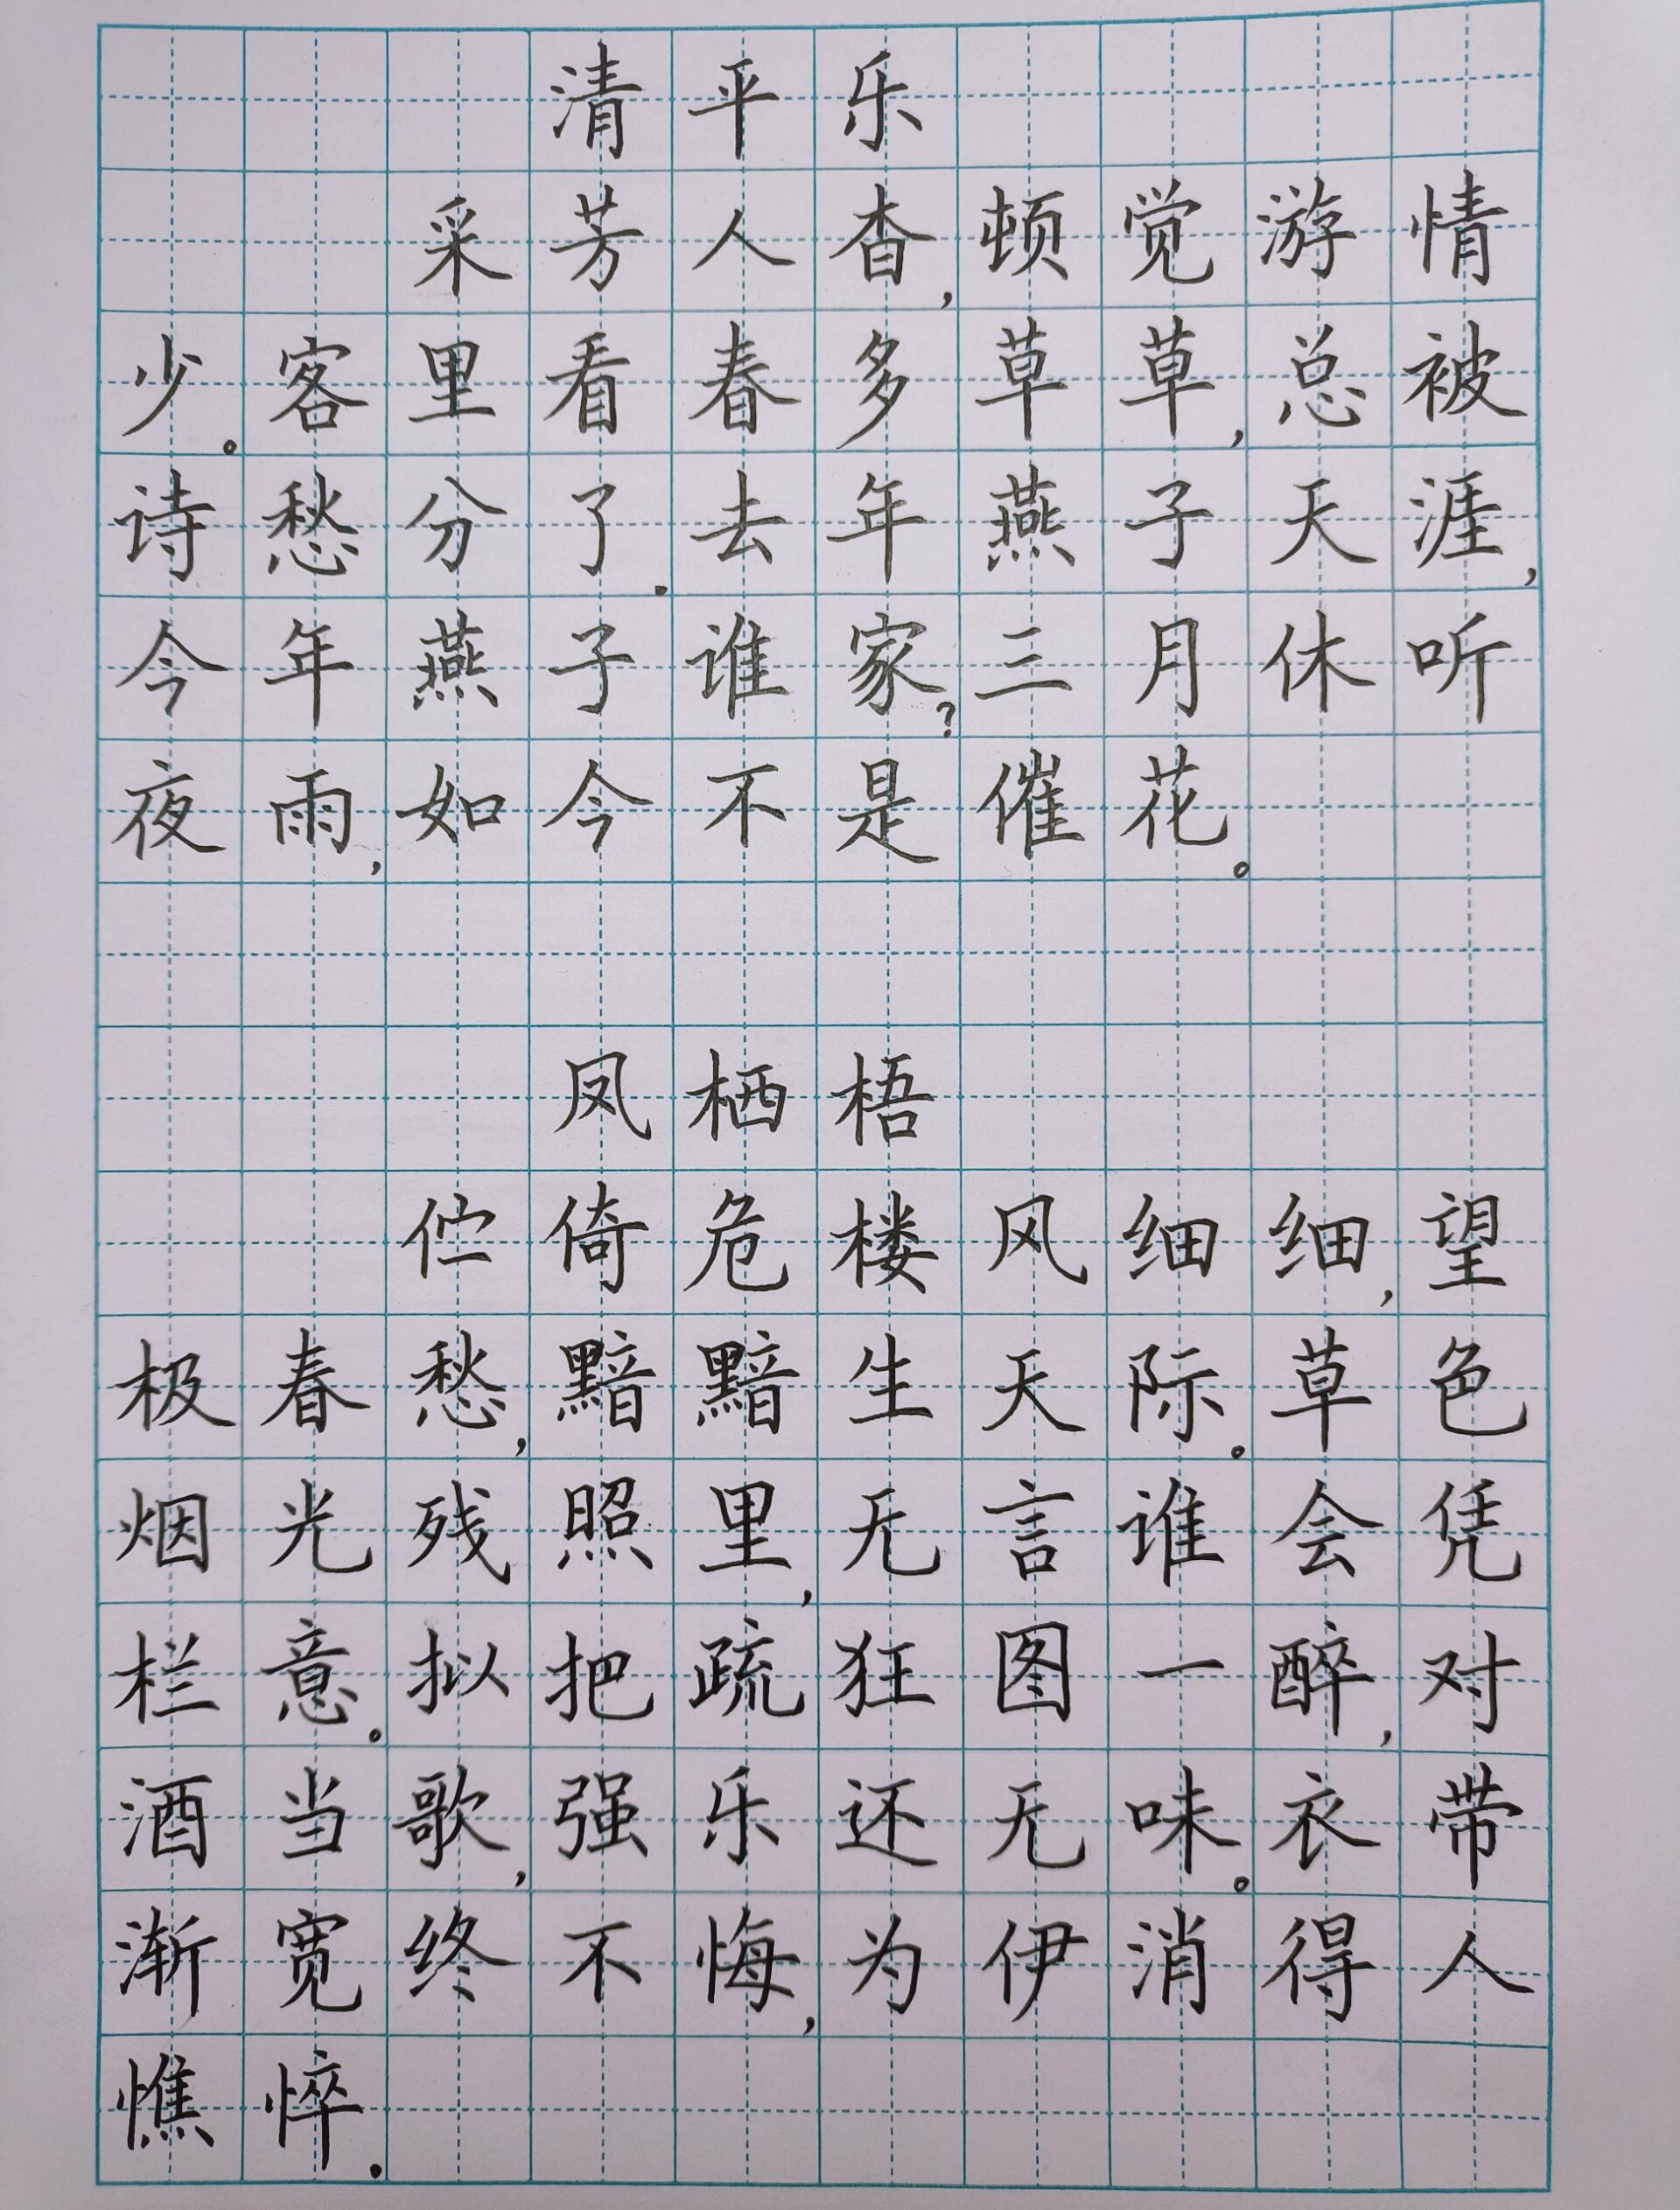 清平乐
采芳人杳,顿觉游情
少。客里看春多草草,总被
诗愁分了。去年燕子天涯,
今年燕子谁家?三月休听
夜雨,如今不是催花。
凤栖梧
伫倚危楼风细细,望
极春愁,黯黯生天际。草色
烟光残照里,无言谁会凭
栏意。拟把疏狂图一醉,对
酒当歌,强乐还无味。衣带
渐宽终不悔,为伊消得人
憔悴。